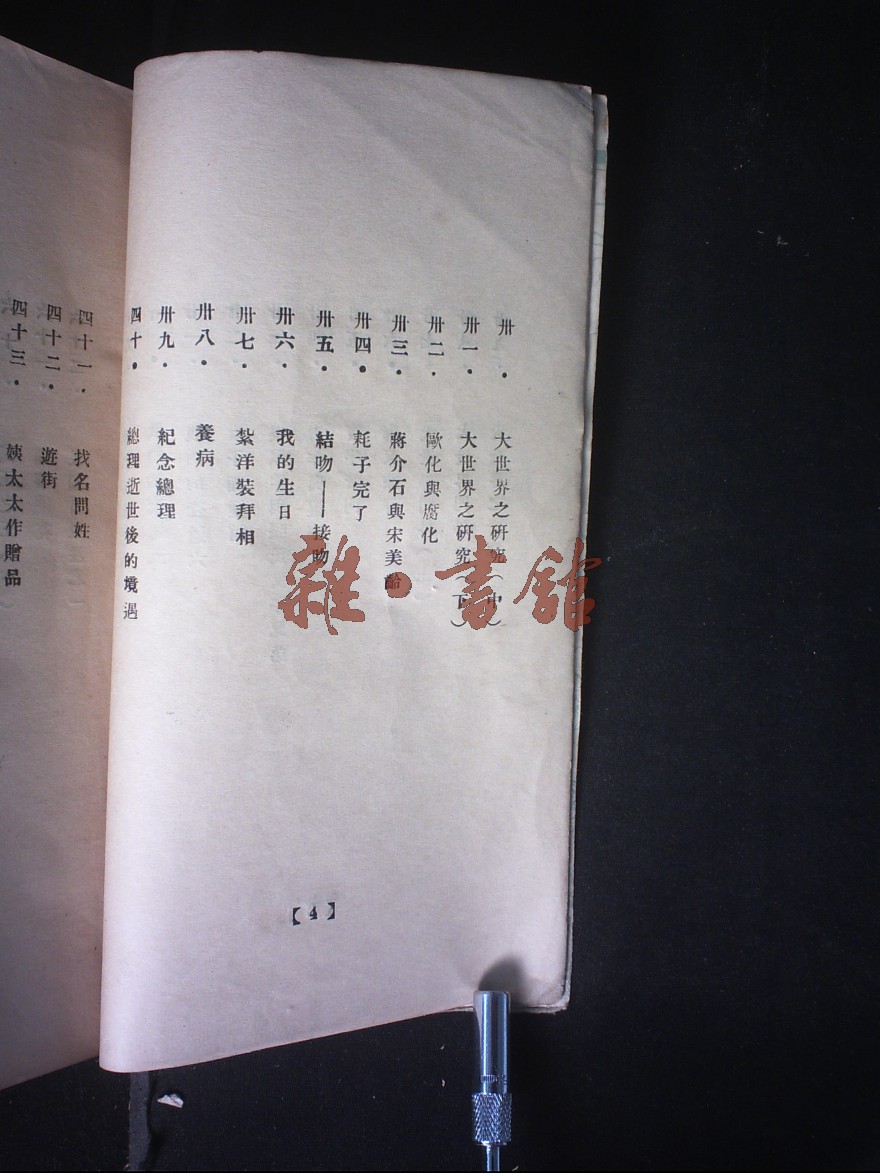 卅・大世界之硏究(中)
卅一・大世界之硏究(下)
卅二・歐化與腐化
卅三・蔣介石與宋美齡
卅四・耗子完了
卅五・結吻——接吻
卅六・我的生日
卅七・紮洋裝拜相
卅八・養病
卅九・紀念總理
四十・總理逝世後的境遇
【4】
四十一・找名問姓
四十二・遊街
四十三・姨太太作贈品
雜・書館